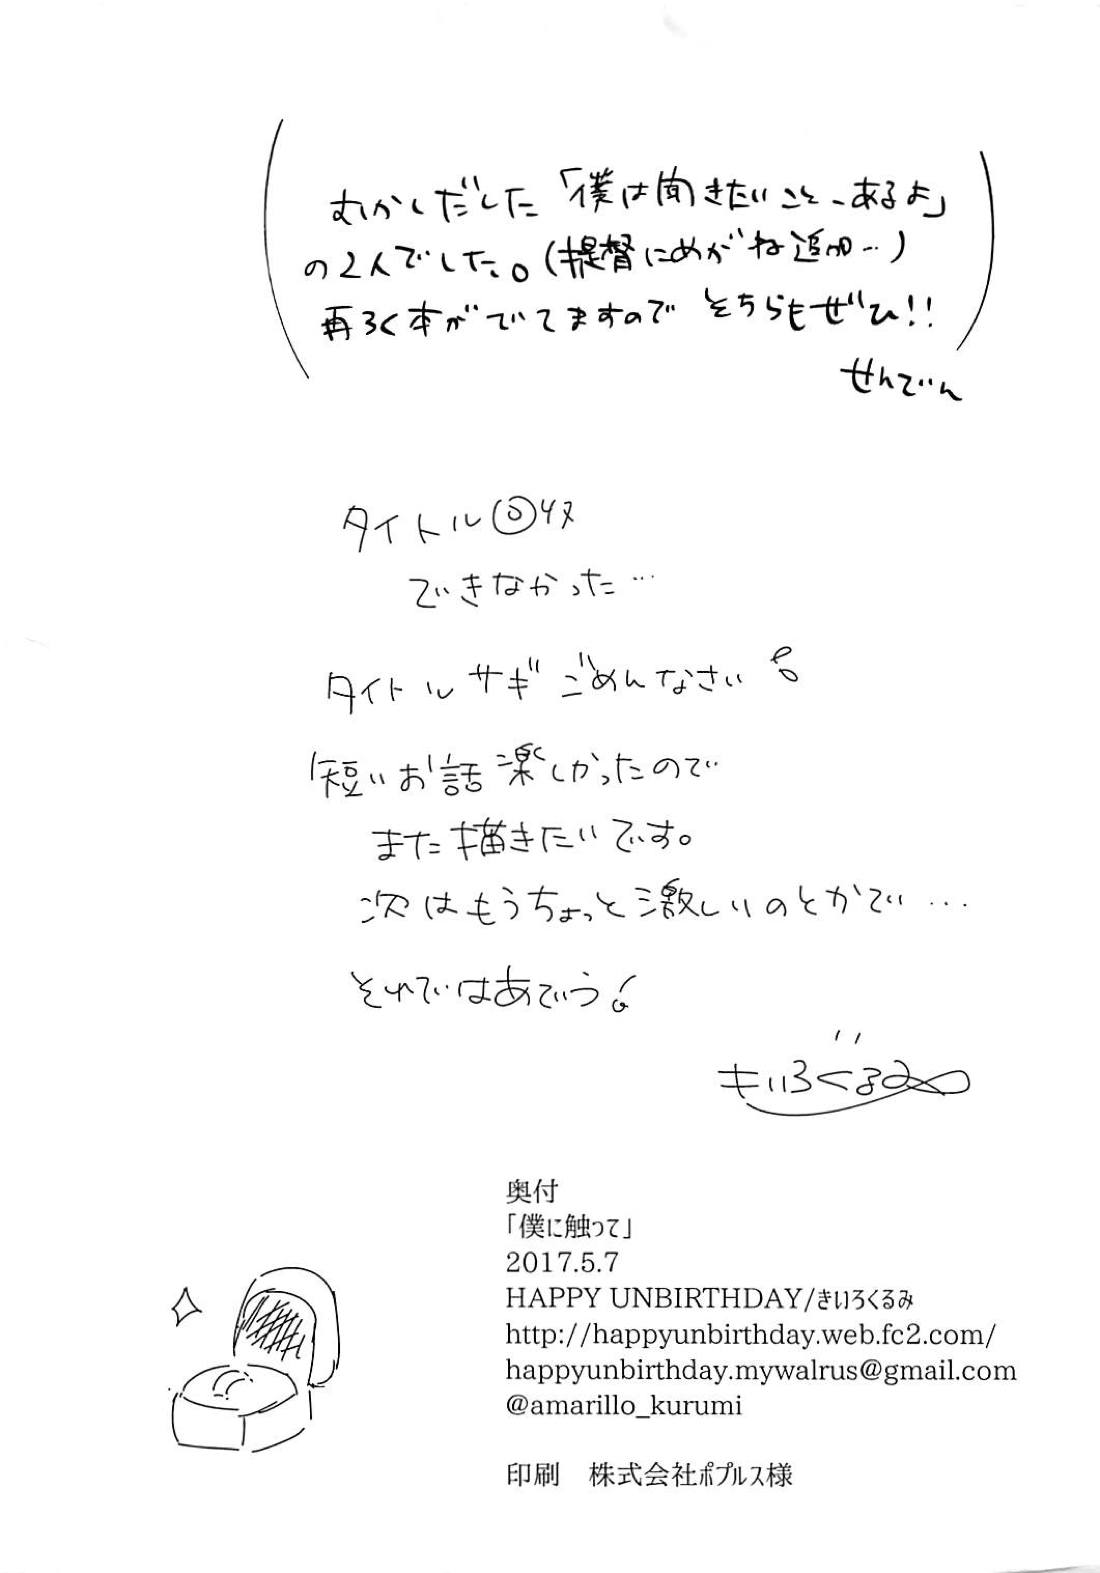 むかしだした「僕は聞きたいこと、あるよ」
の2人でした。(提督にめがね追加…)
再ろく本がでてますので そちらもぜひ!!
せんでん
タイトル回収
できなかった…
タイトルサギ ごめんなさい
短いお話楽しかったので
また描きたいです。
次はもうちょっと激しいのとかで…
それではあでぃう
きいろくるみ
奥付
「僕に触って」
2017.5.7
HAPPY UNBIRTHDAY/きいろくるみ
http://happyunbirthday.web.fc2.com/
happyunbirthday.mywalrus@gmail.com
@amarillo_kurumi
印刷　株式会社ﾎﾟﾌﾟﾙｽ様